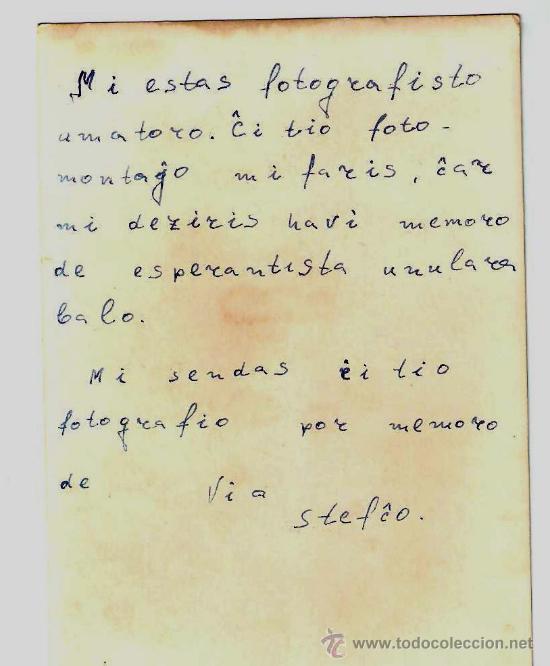 Mi estas fotografisto
amatoro. Ĉi tio foto-
montaĝo mi faris, ĉar
mi deziris havi memoro
de esperantista unulara
balo.
Mi sendas ĉi tio
fotografio por memoro
de Via
Stefĉo.
www.todocoleccion.net